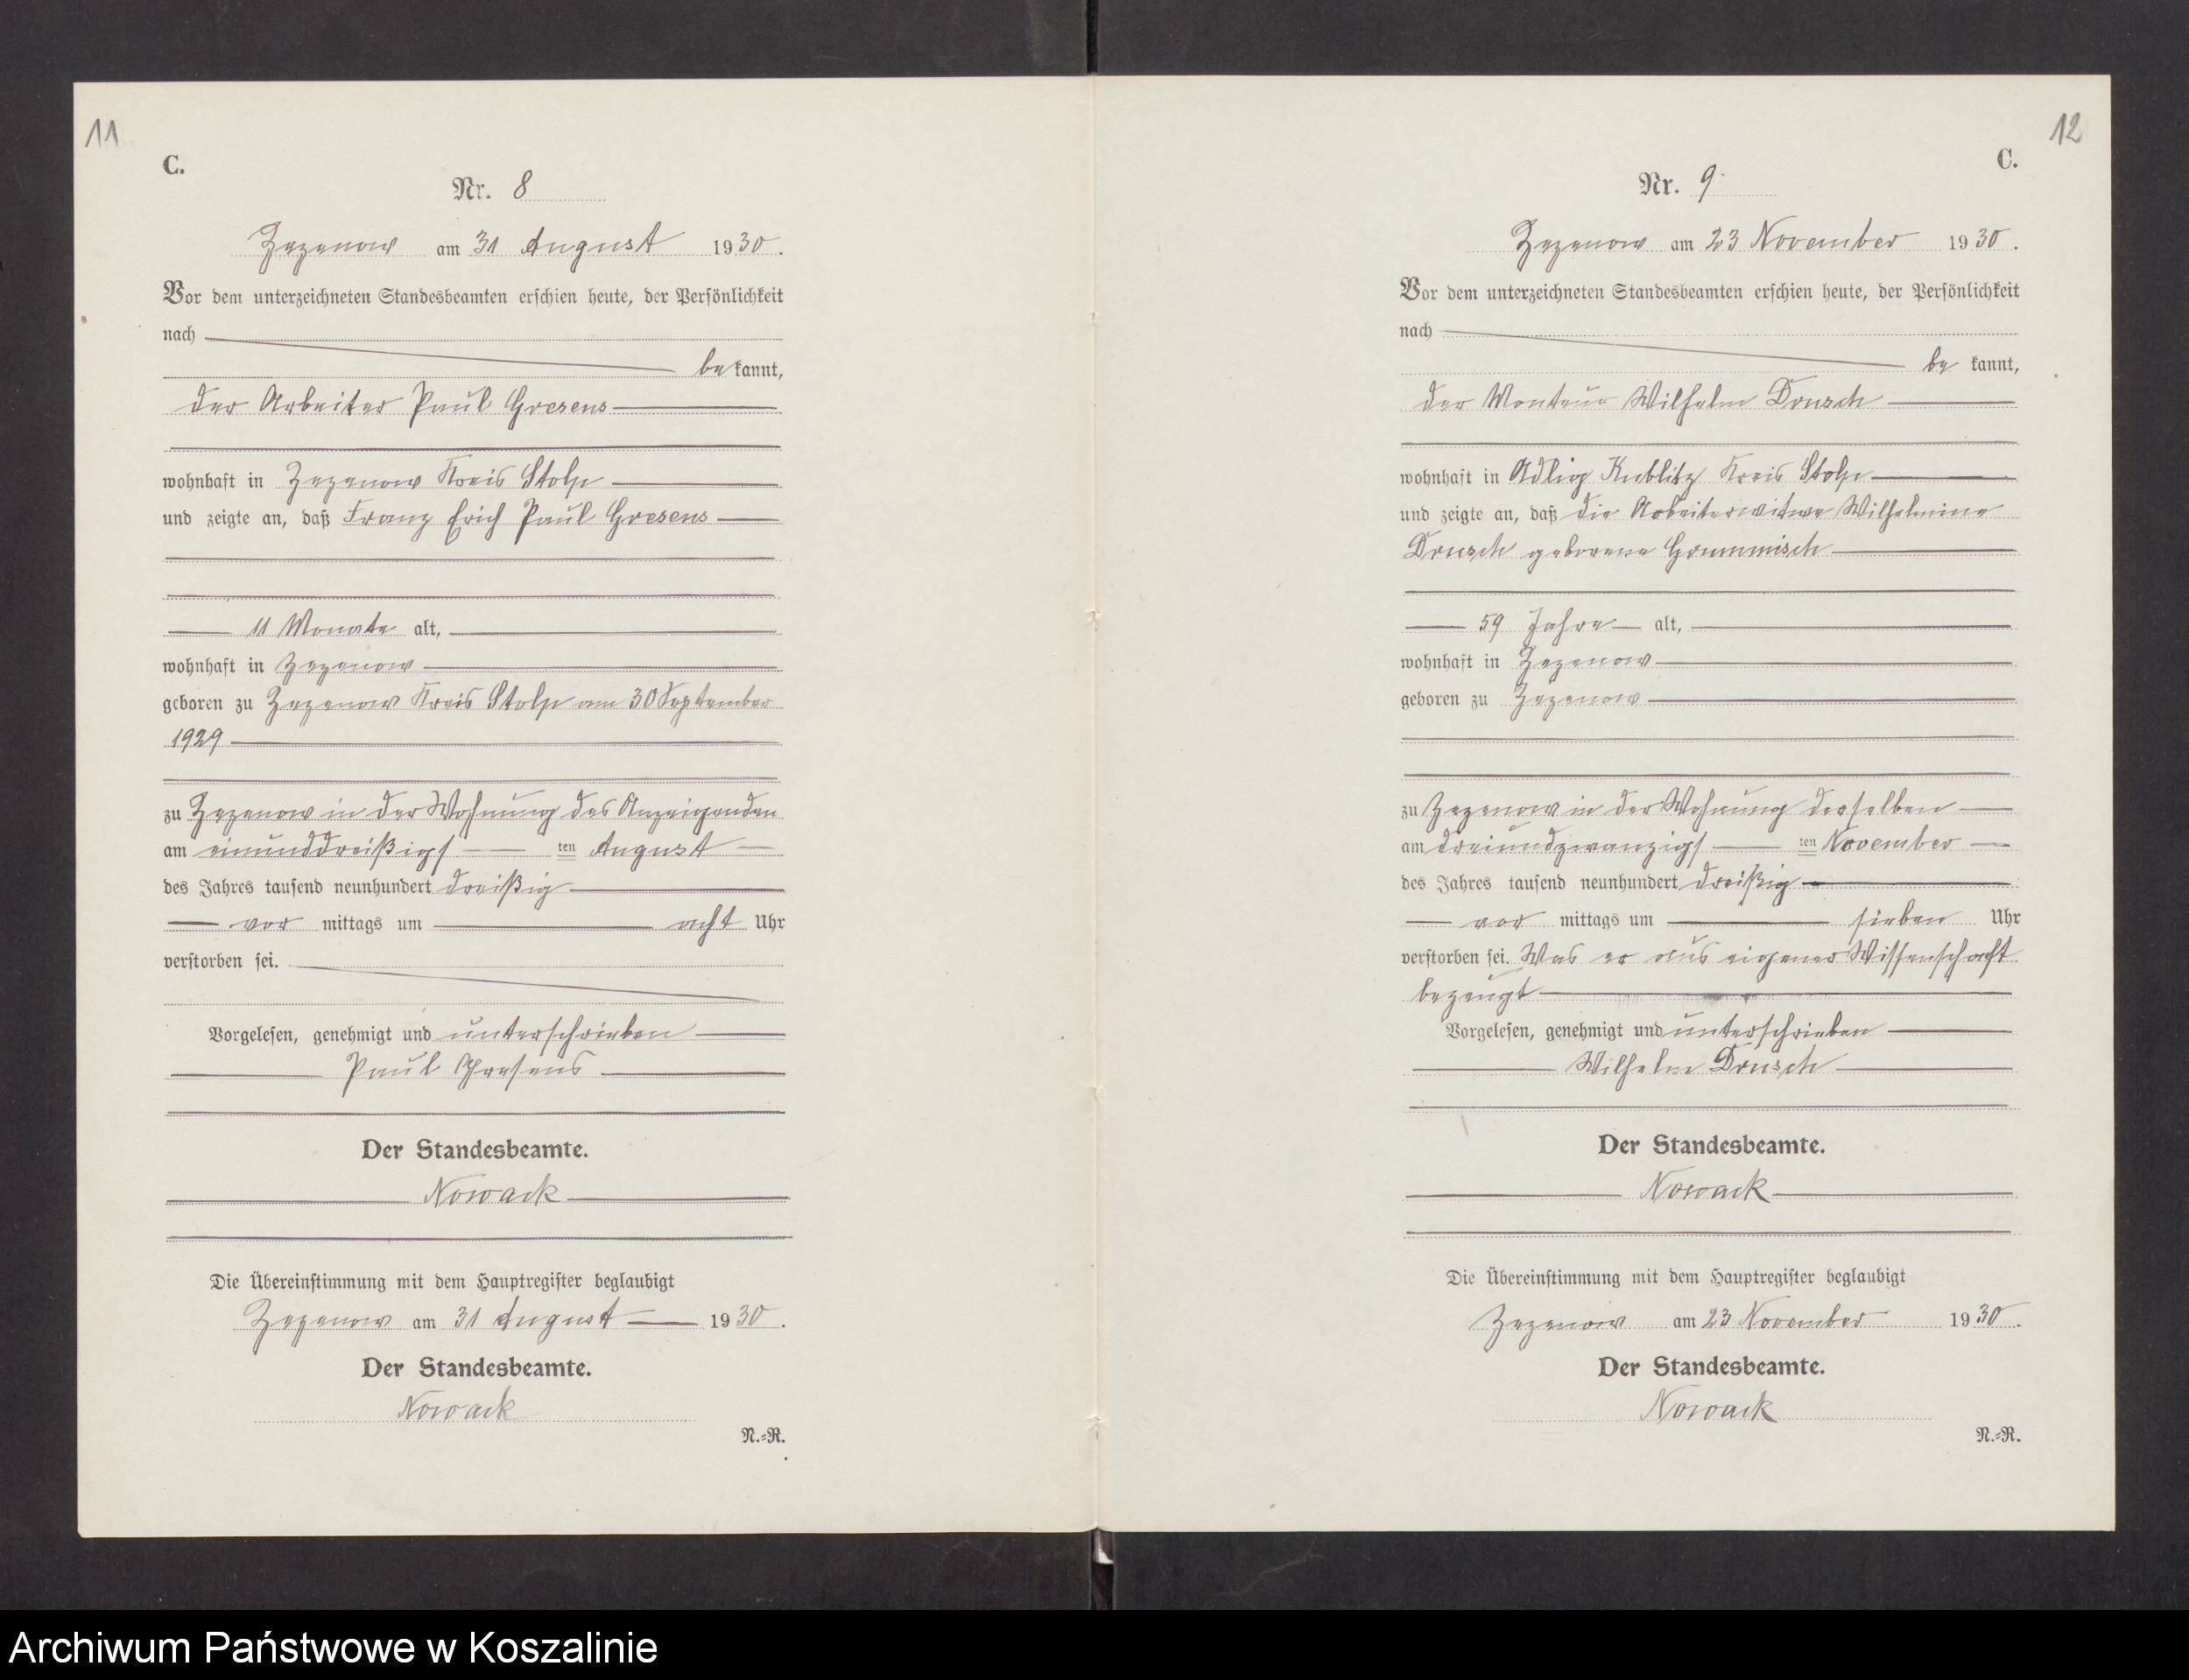 11
C.
Nr. 8
Zezenow am 31 August 1930.
Vor dem unterzeichneten Standesbeamten erschien heute, der Persönlichkeit
nach
be kannt,
der Arbeiter Paul Gresens
wohnhaft in Zezenow Kreis Stolp
und zeigte an, daß Franz Erich Paul Gresens
11 Monate alt,
wohnhaft in Zezenow
geboren zu Zezenow Kreis Stolp am 30 September
1929
zu Zezenow in der Wohnung des Anzeigenden
am einunddreißigs ten August
des Jahres tausend neunhundert dreißig
vor mittags um acht Uhr
verstorben sei.
Vorgelesen, genehmigt und unterschrieben
Paul Gresens
Der Standesbeamte.
Nowack
Die Übereinstimmung mit dem Hauptregister beglaubigt
Zezenow am 31 August 1930.
Der Standesbeamte.
Nowack
N.=R.
12
C.
Nr. 9.
Zezenow am 23 November 1930.
Vor dem unterzeichneten Standesbeamten erschien heute, der Persönlichkeit
nach
be kannt,
der Monteur Wilhelm Drusch
wohnhaft in Adlig Kublitz Kreis Stolp
und zeigte an, daß die Arbeiterwitwe Wilhelmine
Drusch geborene Grummisch
59 Jahre alt,
wohnhaft in Zezenow
geboren zu Zezenow
zu Zezenow in der Wohnung derselben
am dreiundzwanzigs ten November
des Jahres tausend neunhundert dreißig
vor mittags um sieben Uhr
verstorben sei. Was er aus eigener Wissenschaft
bezeugt
Vorgelesen, genehmigt und unterschrieben
Wilhelm Drusch
Der Standesbeamte.
Nowack
Die Übereinstimmung mit dem Hauptregister beglaubigt
Zezenow am 23 November 1930.
Der Standesbeamte.
Nowack
N.=R.
Archiwum Państwowe w Koszalinie